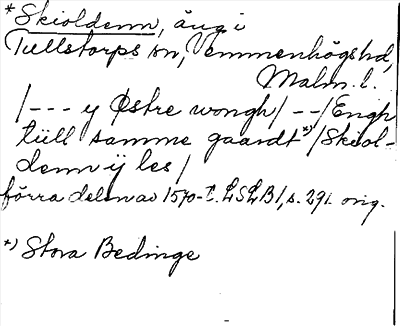 *Skioldenn, äng i
Tullstorps sn, Vemmenhögs hd,
Malm. l.
/--- y Østre wongh/--/Engh
tiill samme gaardt*)/Skiol-
denn ÿ les/
förra delen av 1570-t. LSLB1, s. 291. orig.
*) Stora Bedinge